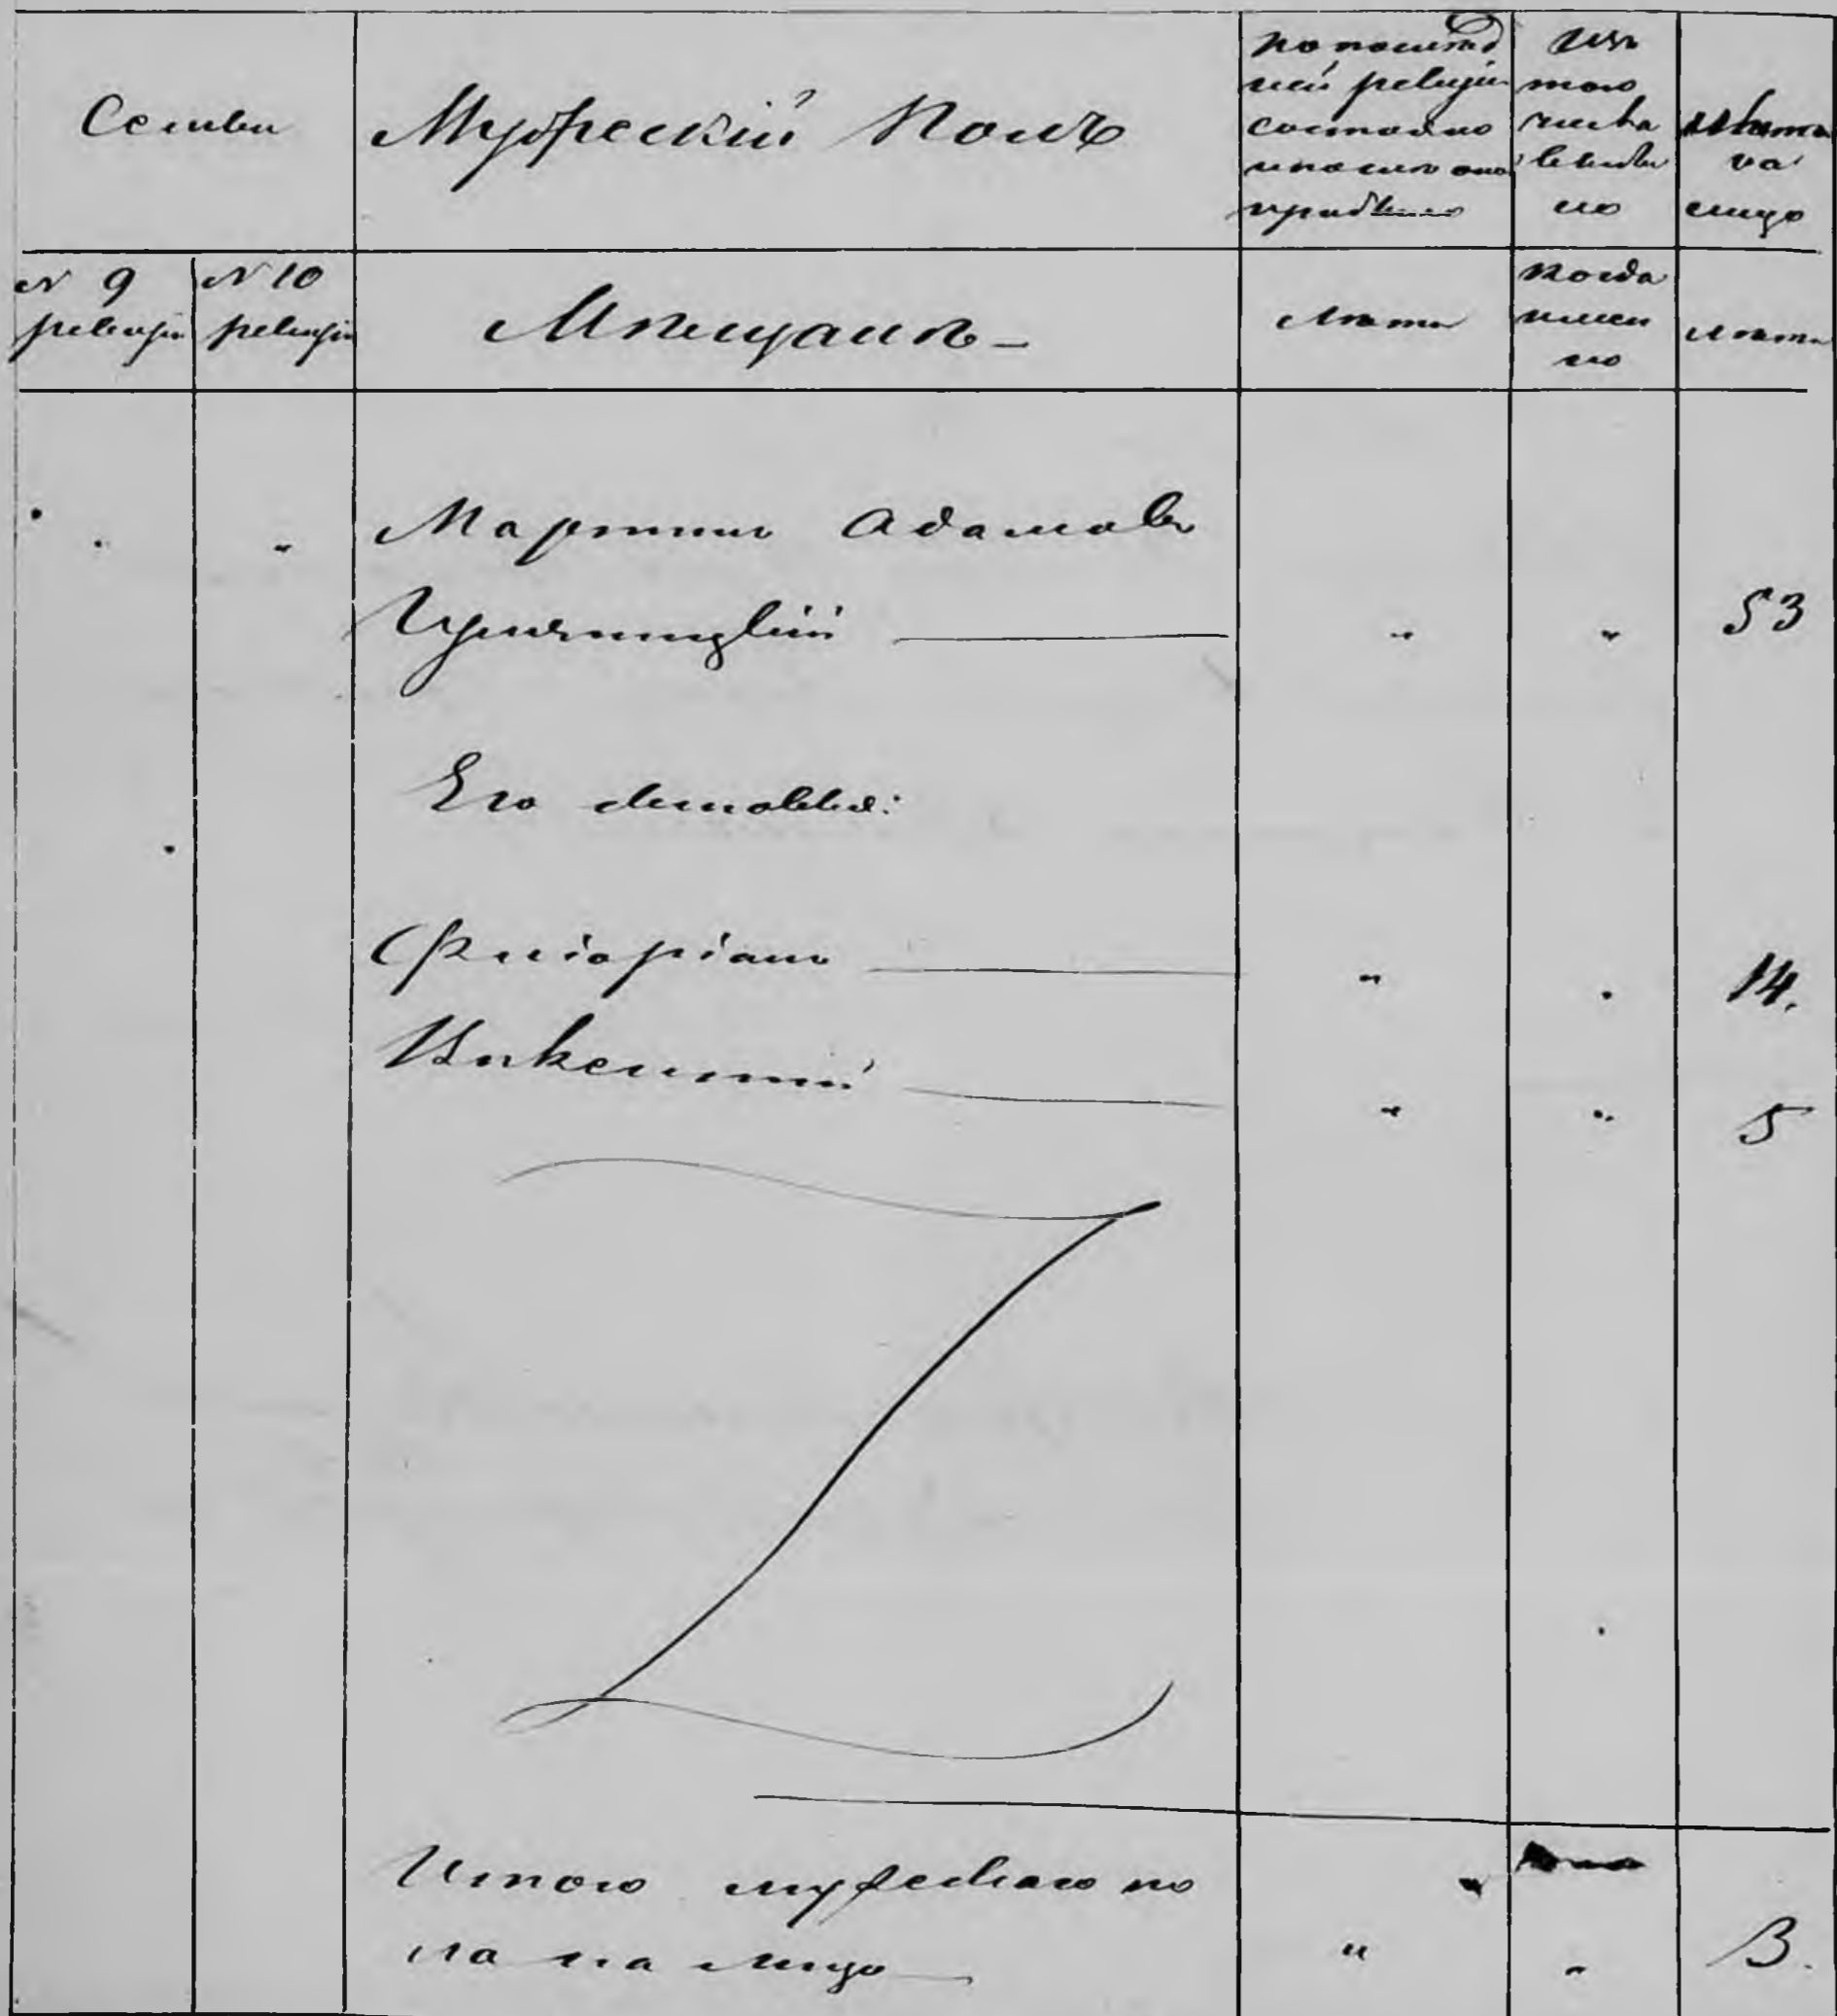 Семьи
Мужескій Полъ
по послѣд
ней ревизіи
состояло
и послѣ оной
прибыло
Изъ
того
числа
выбы
ло
Нынѣ
на
лицо
N 9
ревизіи
N 10
ревизіи
Мѣщанъ —
Лѣта
Когда
имен
но
Лѣта
" " Мартинъ Адамовъ
" " 53
Его сыновья:
Флоріанъ " " 14.
Викентій " " 5
Итого мужескаго по
ла на лицо — " " 3.